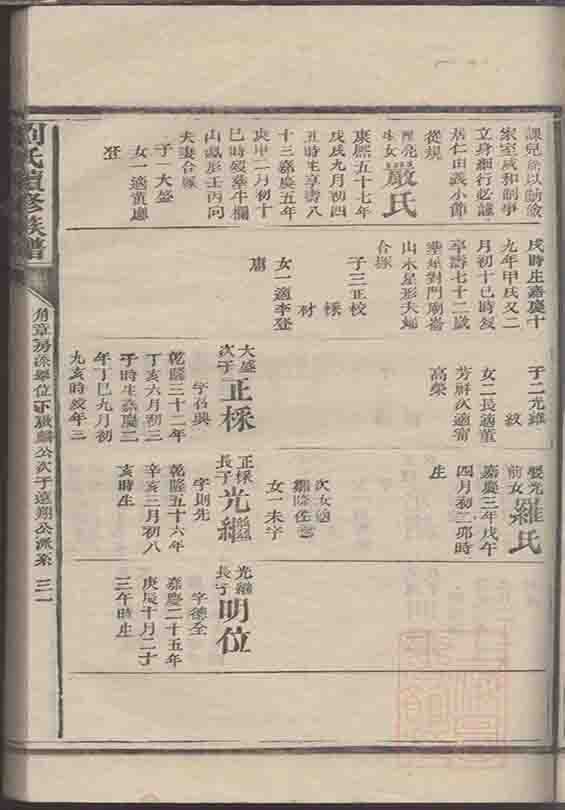 課兒孫以勤儉
家室咸和制事
立身細行必謹
居仁由義小節
從規
嚴氏
生女
康熙五十七年
戊戌九月初四
丑時生享壽八
十三嘉慶五年
庚申二月初十
巳時歿葬牛欄
山鳳形壬丙向
夫妻合塚
子一大盛
女一適董應
戌時生嘉慶十
九年甲戌又二
月初十巳時歿
享壽七十二歲
對門廟
山木星形夫婦
合塚
子三正校
材
女一適李登
子二光維
女二長適董
芳次適甯
高榮
大盛次子正㭱
字
乾隆三十二年
丁亥六月初三
子時生嘉慶二
年丁巳九月初
九亥時歿年三
娶光前女羅氏
嘉慶三年戊午
四月初二卯時
生
次女適
女一未字
正㭱長子光繼
字則先
乾隆五十六年
辛亥三月初八
亥時生
光繼長子明位
字德全
嘉慶二十五年
庚辰十月二十
三午時生
劉氏續修族譜
公次子遠翔公派系 三一